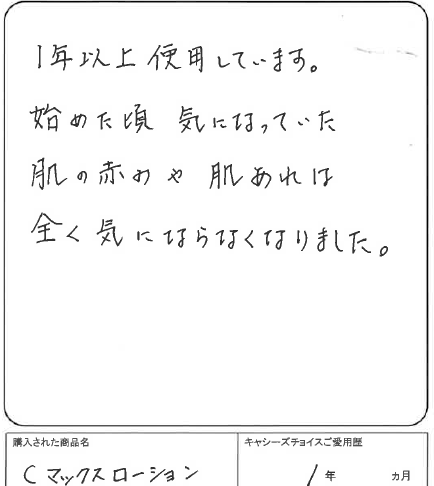 1年以上使用しています。
始めた頃 気になっていた
肌の赤みや 肌あれは
全く気にならなくなりました。
購入された商品名
キャシーズチョイスご愛用歴
Cマックスローション
1年 ヵ月